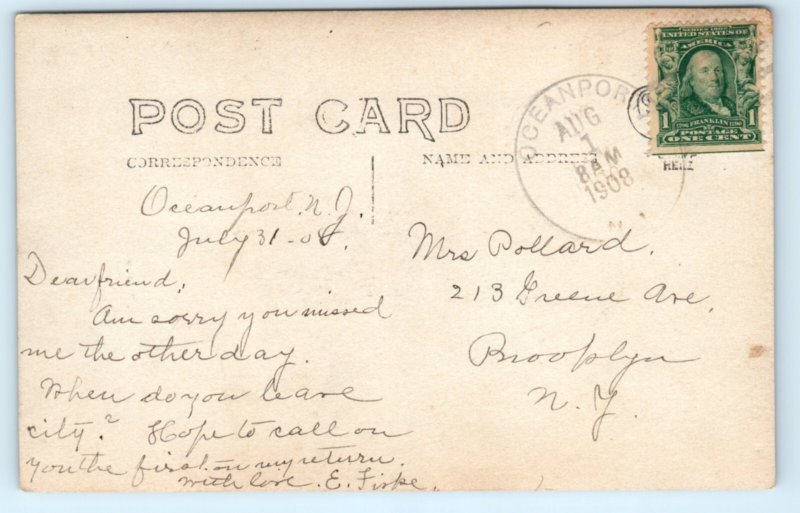 POST CARD
CORRESPONDENCE
NAME AND ADDRESS
HERE
OCEANPOR
AUG
1
8 AM
1908
N.J.
SERIES 1902
UNITED STATES OF
AMERICA
1 1
FRANKLIN
POSTAGE
ONE CENT
Oceanport. N. J.
July 31-08.
Dear friend;
Am sorry you missed
me the other day.
When do you leave
city? Hope to call on
you the first on my return.
with love. E. Fiske.
Mrs Pollard.
213 Greene Ave.
Brooklyn
N. Y.